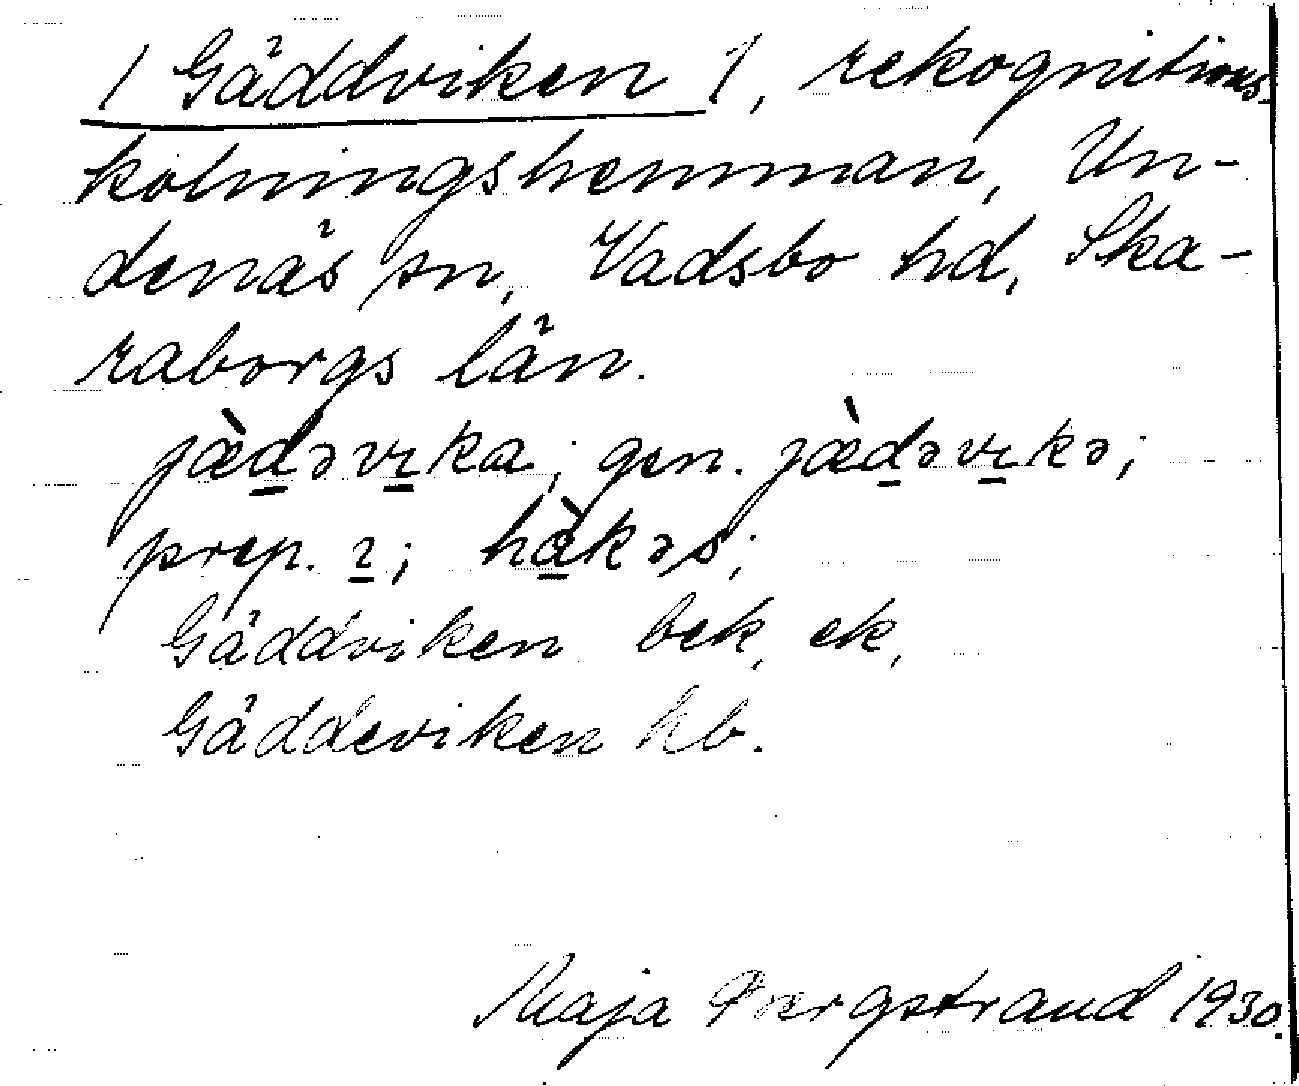 / Gäddviken /, rekognitions-
kolningshemman, Un-
denäs sn, Vadsbo hd, Ska-
raborgs län.
jæ̀d̲əvɪ̲ka; gen. jæ̀d̲əvɪ̲kə;
prep. ɪ̲; hà̲kəs;
Gäddviken bek, ek,
Gäddeviken hb.
Maja Bergstrand 1930.